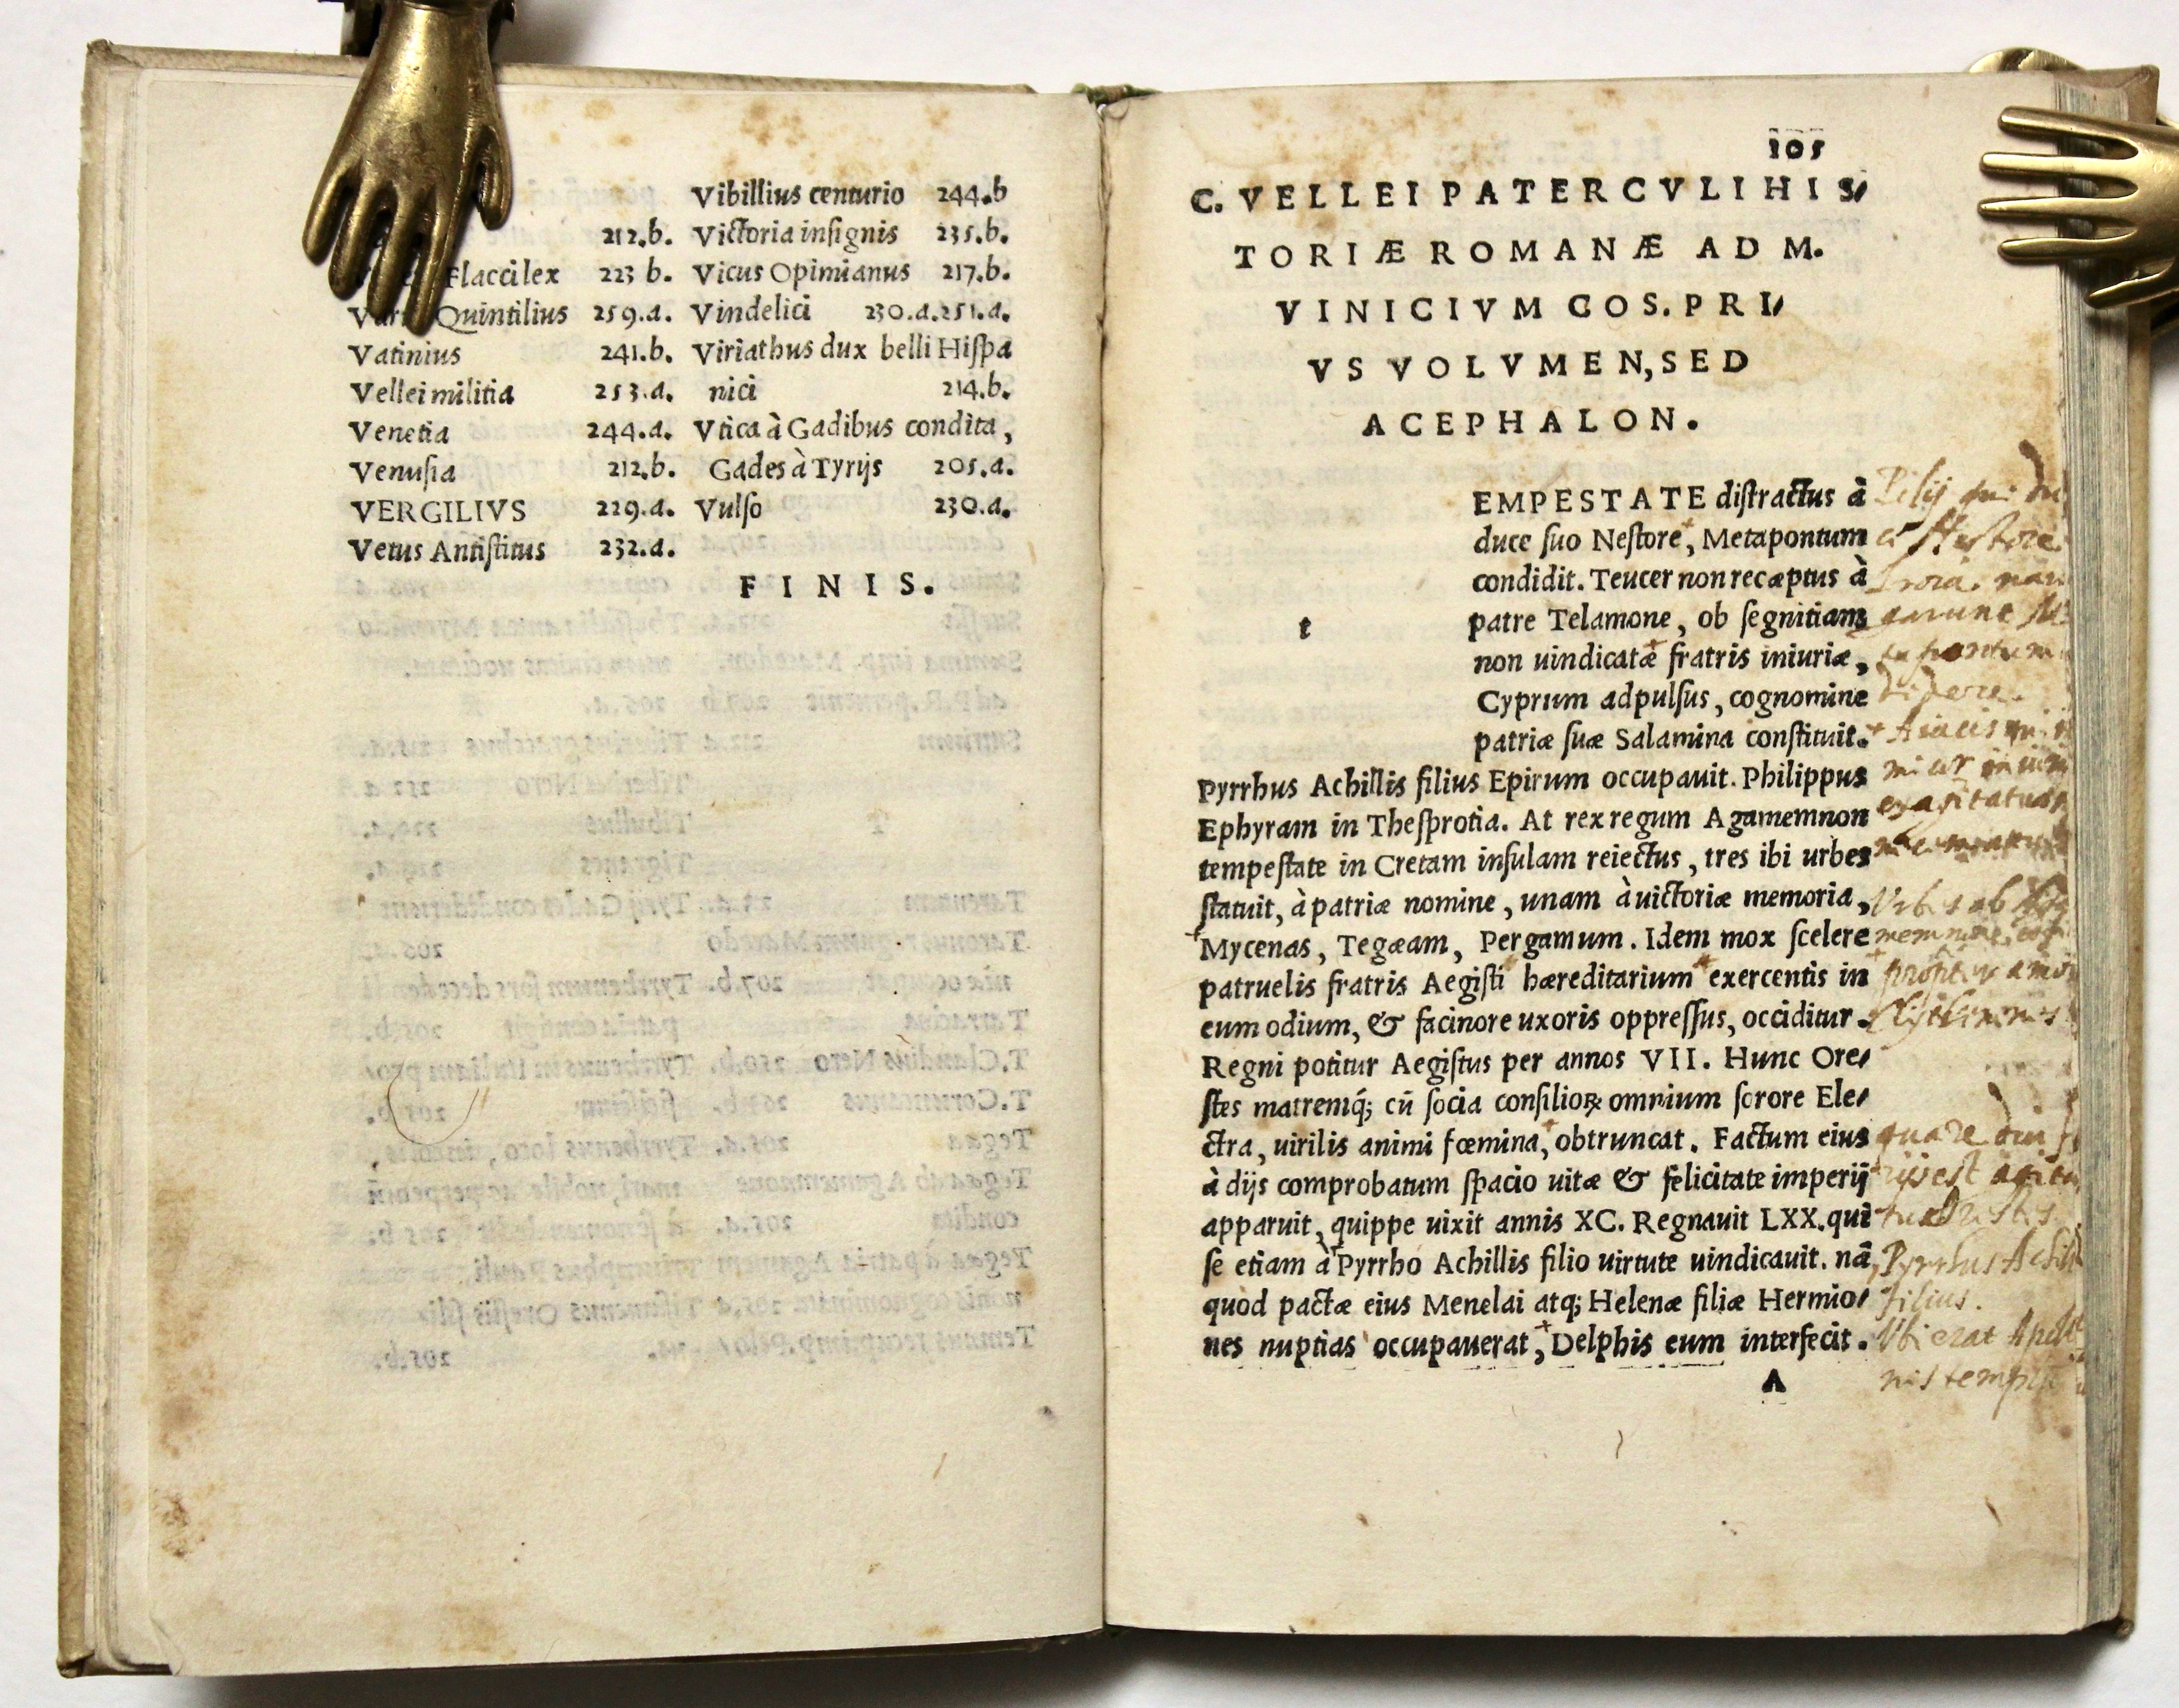 212.b.
Flacci lex 223 b.
Quintilius 259.a.
Vatinius 241.b.
Vellei militia 253.a.
Venetia 244.a.
Venusia 212.b.
VERGILIVS 229.a.
Vetus Antiſtitus 232.a.
Vibillius centurio 244.b
Victoria inſignis 235.b.
Vicus Opimianus 217.b.
Vindelici 230.a.251.a.
Viriathus dux belli Hiſpa
nici 214.b.
Vtica à Gadibus condita,
Gades à Tyrijs 205.a.
Vulſo 230.a.
FINIS.
105
C. VELLEI PATERCVLI HIS/
TORIÆ ROMANÆ AD M.
VINICIVM COS. PRI/
VS VOLVMEN, SED
ACEPHALON.
t
EMPESTATE diſtractus à
duce ſuo Neſtore, Metapontum
condidit. Teucer non recæptus à
patre Telamone, ob ſegnitiam
non uindicatæ fratris iniuriæ,
Cyprum adpulſus, cognomine
patriæ ſuæ Salamina conſtituit.
Pyrrhus Achillis filius Epirum occupauit. Philippus
Ephyram in Theſprotia. At rex regum Agamemnon
tempeſtate in Cretam inſulam reiectus, tres ibi urbes
ſtatuit, à patriæ nomine, unam à uictoriæ memoria,
Mycenas, Tegæam, Pergamum. Idem mox ſcelere
patruelis fratris Aegiſti hæreditarium exercentis in
eum odium, & facinore uxoris oppreſſus, occiditur.
Regni potitur Aegiſtus per annos VII. Hunc Ore/
ſtes matremq́; cū ſocia conſilioꝝ omnium ſorore Ele/
ctra, uirilis animi fœmina, obtruncat. Factum eius
à dijs comprobatum ſpacio uitæ & felicitate imperij
apparuit, quippe uixit annis XC. Regnauit LXX. qui
ſe etiam à Pyrrho Achillis filio uirtute uindicauit. nā
quod pactæ eius Menelai atq; Helenæ filiæ Hermio/
nes nuptias occupauerat, Delphis eum interfecit.
A
Pyrrhus
filius.
Vbi erat